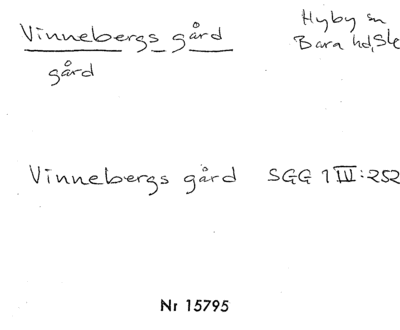 Vinnebergs gård
Hyby sn
Bara hd, Sk
gård
Vinnebergs gård SGG 1 IV:252
Nr 15795